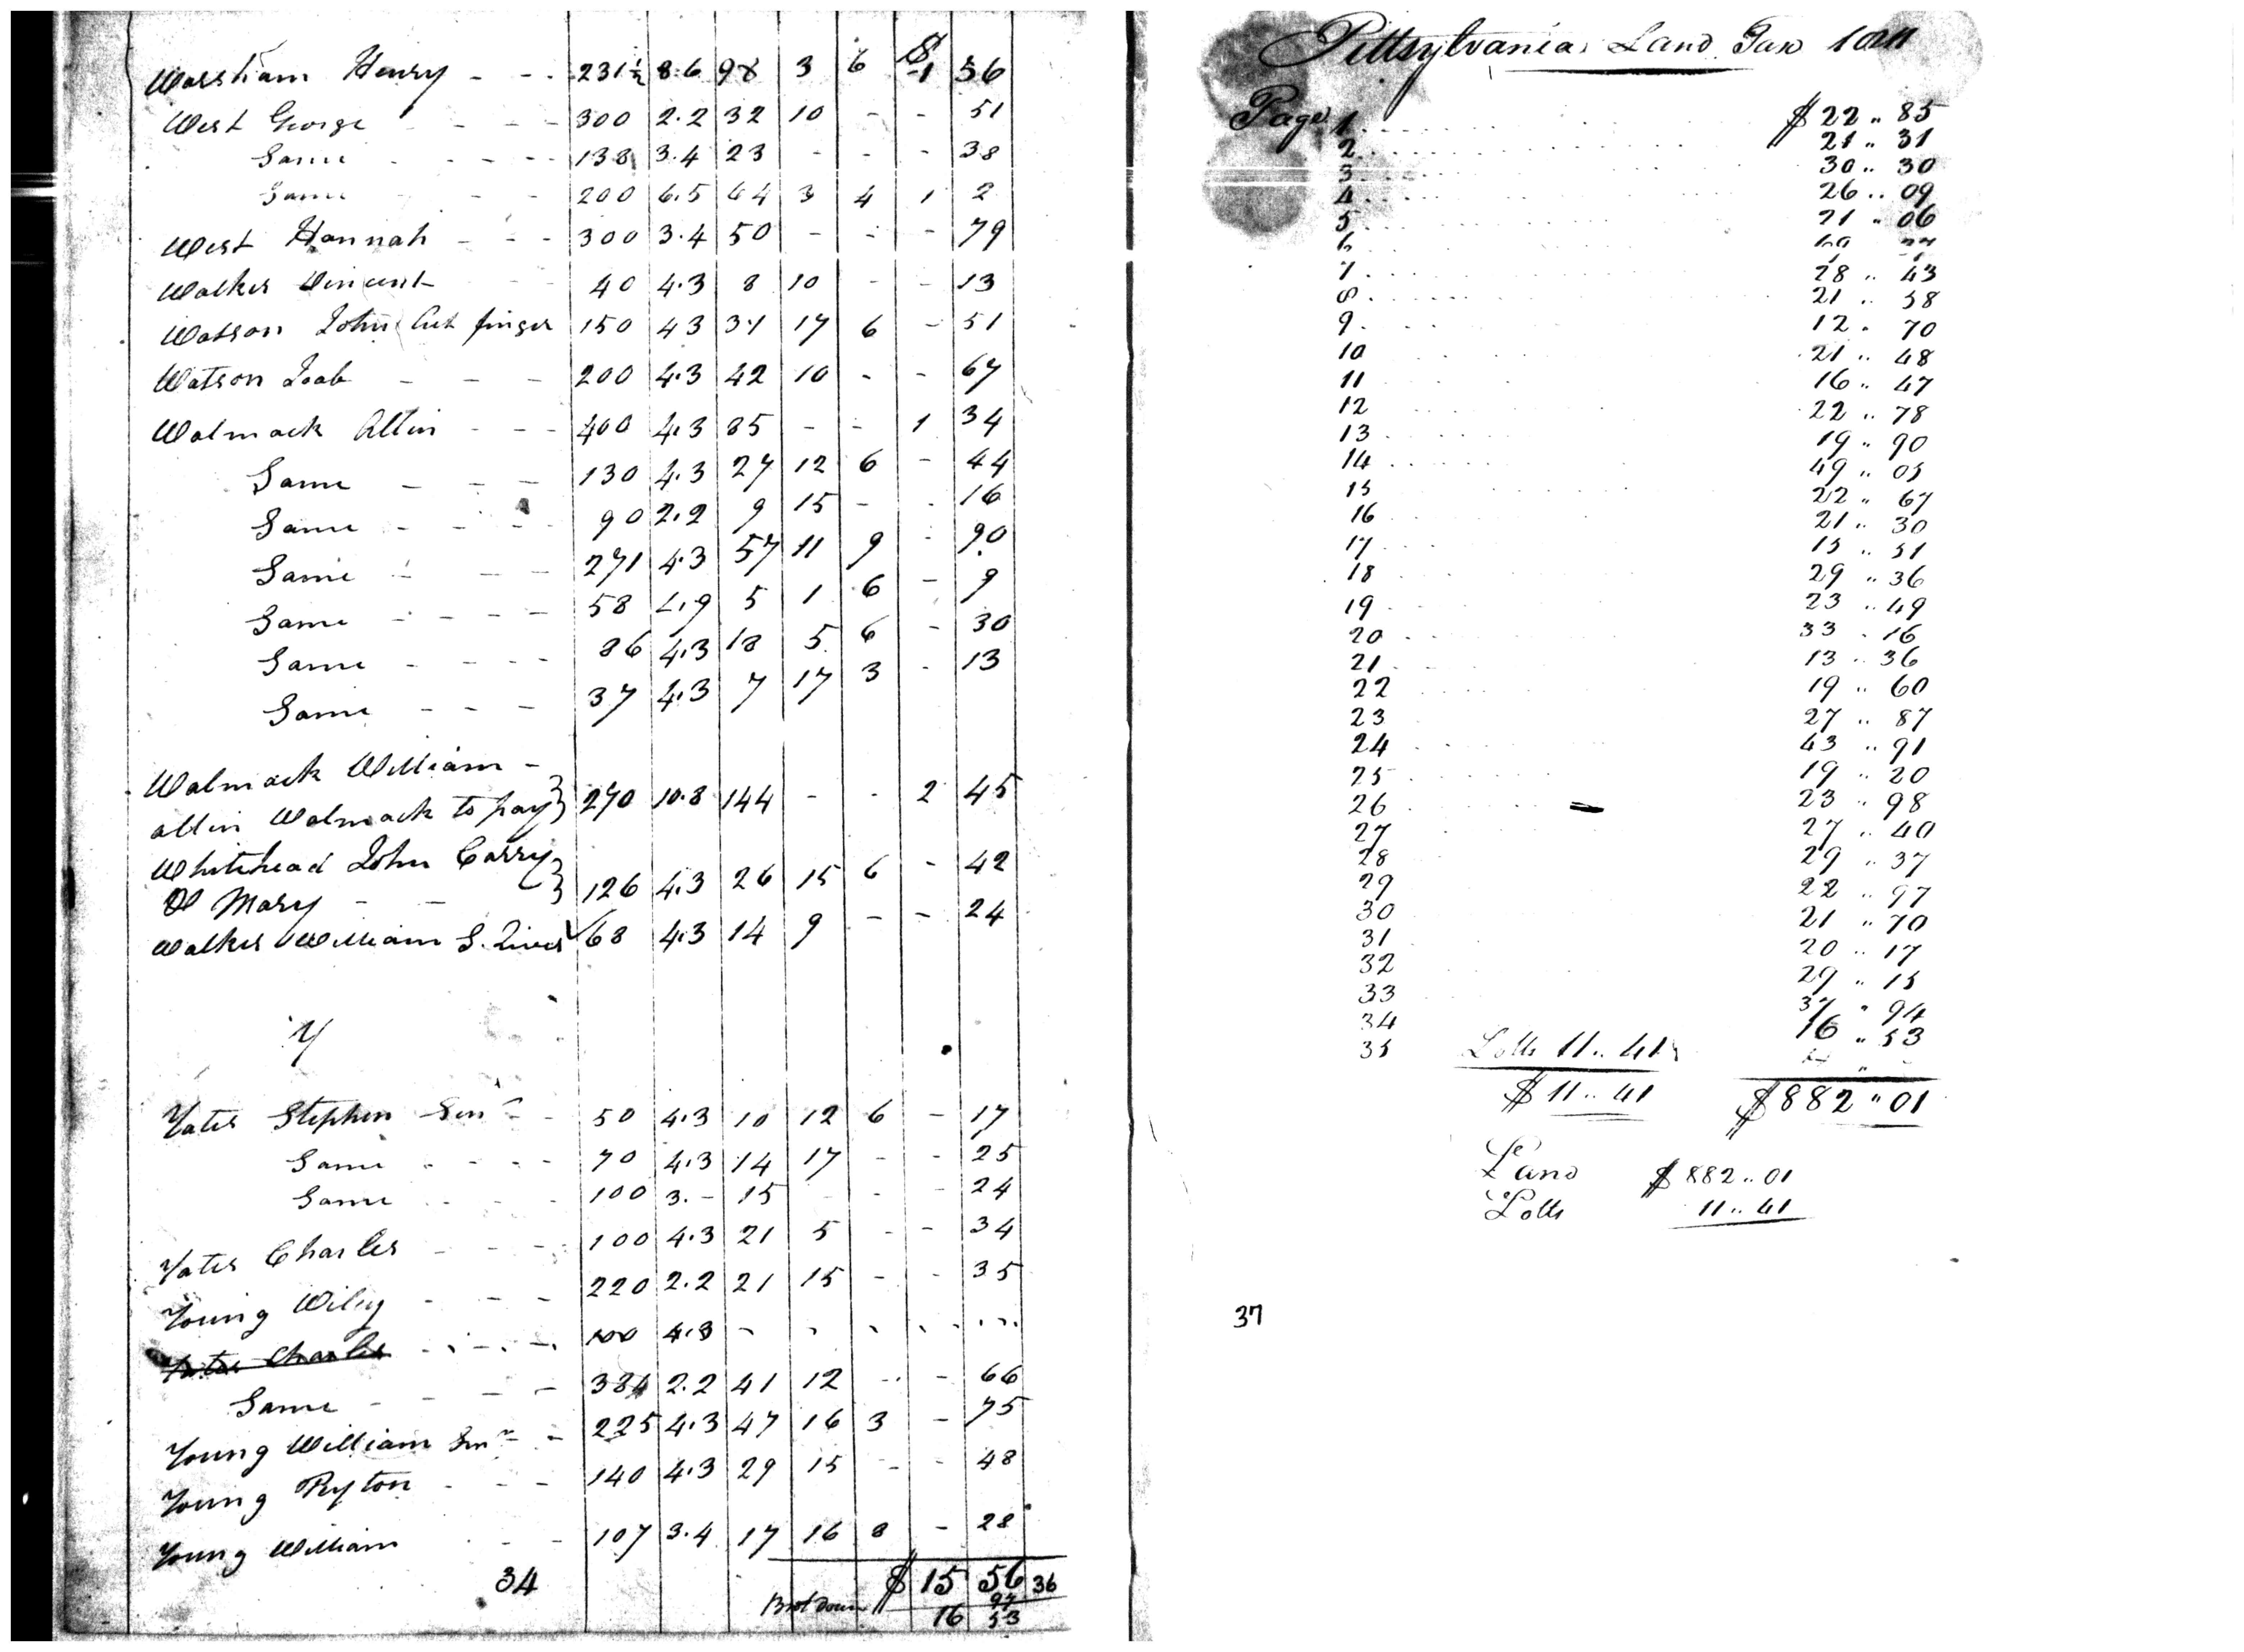 Worsham Henry - - - 231½ 8.6 98 3 6 $1 56
West George - - - - 300 2.2 32 10 - - 51
Same - - - - 138 3.4 23 - - - 38
Same - - - 200 6.5 64 3 4 1 2
West Hannah - - - 300 3.4 50 - - - 79
Walker Vincent 40 4.3 8 10 - - 13
Watson John Cut finger 150 4.3 31 17 6 - 51
Watson Joab - - - 200 4.3 42 10 - - 67
Walmack Allin - - - 400 4.3 85 - - 1 34
Same - - - 130 4.3 27 12 6 - 44
Same - - - 90 2.2 9 15 - - 16
Same - - - 271 4.3 57 11 9 - 90
Same - - - - 58 1.9 5 1 6 - 9
Same - - - - 86 4.3 18 5 6 - 30
Same - - - 37 4.3 7 17 3 - 13
Walmack William -
Allin Walmack to pay } 270 10.8 144 - - 2 45
Whitehead John Carry
& Mary - - } 126 4.3 26 15 6 - 42
Walker William S. River 68 4.3 14 9 - - 24
Y
Yates Stephen Senr - 50 4.3 10 12 6 - 17
Same - - - - 70 4.3 14 17 - - 25
Same - - - 100 3.- 15 - - - 24
Yates Charles - - - 100 4.3 21 5 - - 34
Young Wiley - - - 220 2.2 21 15 - - 35
Yates Charles - - - 100 4.3
Same - - - 384 2.2 41 12 - - 66
Young William Senr - 225 4.3 47 16 3 - 75
Young Peyton - - - 140 4.3 29 15 - - 48
Young William - - 107 3.4 17 16 8 - 28
34 $ 15 56 36
Brot Down 97
16 53
Pittsylvania Land Tax
Page 1 $ 22 .. 85
2 21 .. 31
3 30 .. 30
4 26 .. 09
5 21 .. 06
6
7 28 .. 43
8 21 .. 58
9 12 .. 70
10 21 .. 48
11 16 .. 47
12 22 .. 78
13 19 .. 90
14 49 .. 05
15 22 .. 67
16 21 .. 30
17 15 .. 51
18 29 .. 36
19 23 .. 49
20 33 .. 16
21 13 .. 36
22 19 .. 60
23 27 .. 87
24 43 .. 91
25 19 .. 20
26 23 .. 98
27 27 .. 40
28 29 .. 37
29 22 .. 97
30 21 .. 70
31 20 .. 17
32 29 .. 15
33 37 .. 94
34 16 .. 53
35 Lotts 11 .. 41
$ 11 .. 41 $882 .. 01
Land $ 882 .. 01
Lotts 11 .. 41
37